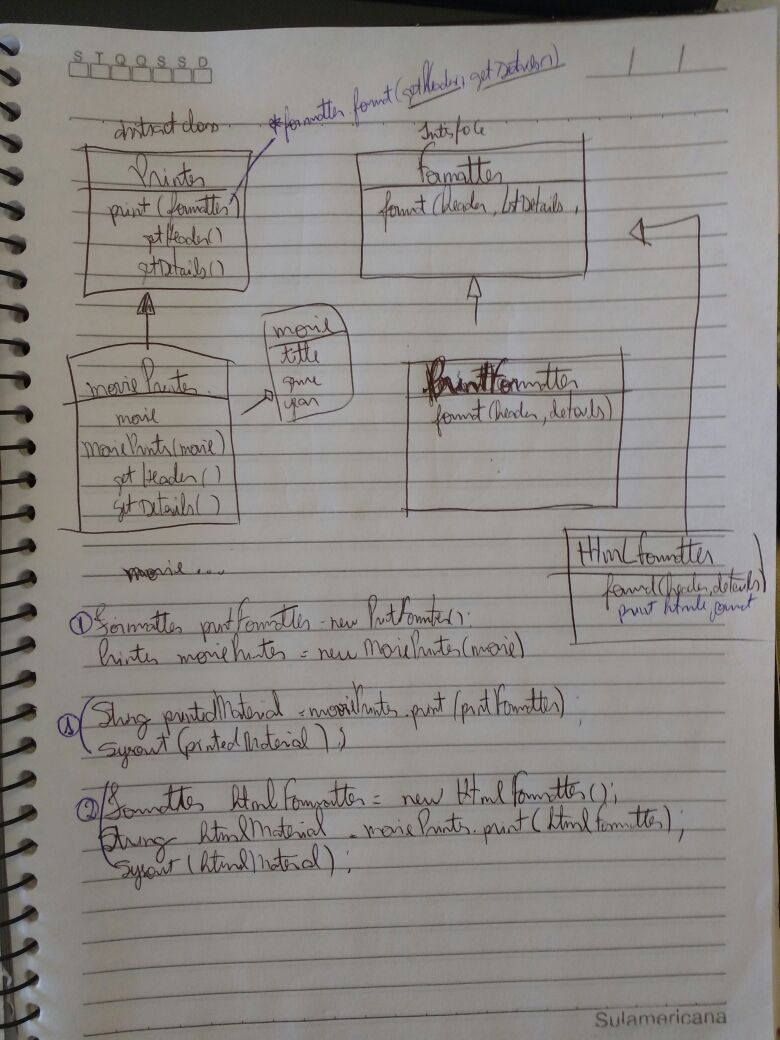 S T Q Q S S D
* formatter.format(getHeader, getDetails())
abstract class
Printer
print (formatter)
getHeader()
getDetails()
Interface
Formatter
format (header, LstDetails,
movie
title
year
moviePrinter
movie
MoviePrinter(movie)
getHeader()
getDetails()
PrintFormatter
format (header, details)
HtmlFormatter
format(header, details)
print html format
movie...
① Formatter printFormatter = new PrintFormatter();
Printer moviePrinter = new MoviePrinter(movie)
① String printedMaterial = moviePrinter.print (printFormatter);
Sysout (printedMaterial);
② Formatter htmlFormatter = new HtmlFormatter();
String htmlMaterial = moviePrinter.print (htmlFormatter);
Sysout (htmlMaterial);
Sulamericana